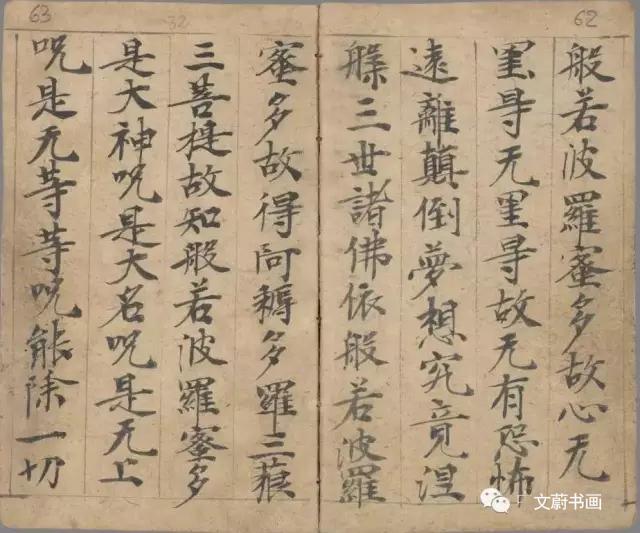 62
般若波羅蜜多故心无
罣㝵无罣㝵故无有恐怖
遠離顛倒夢想究竟涅
槃三世諸佛依般若波羅
63
32
蜜多故得阿耨多羅三藐
三菩提故知般若波羅蜜多
是大神呪是大名呪是无上
呪是无等等呪能除一切
文蔚书画